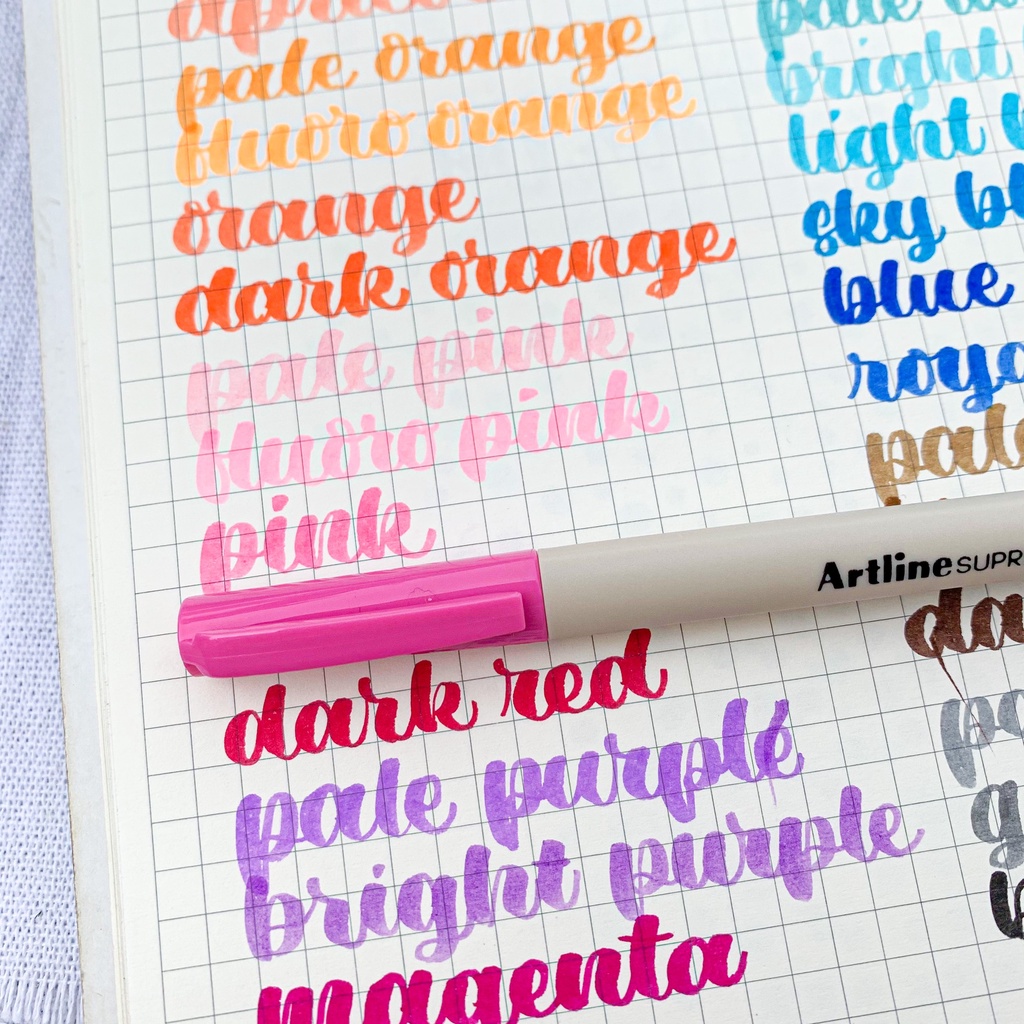 apricot
pale orange
fluoro orange
orange
dark orange
pale pink
fluoro pink
pink
dark red
pale purple
bright purple
magenta
pale
bright
light
sky
blue
pale
Artline